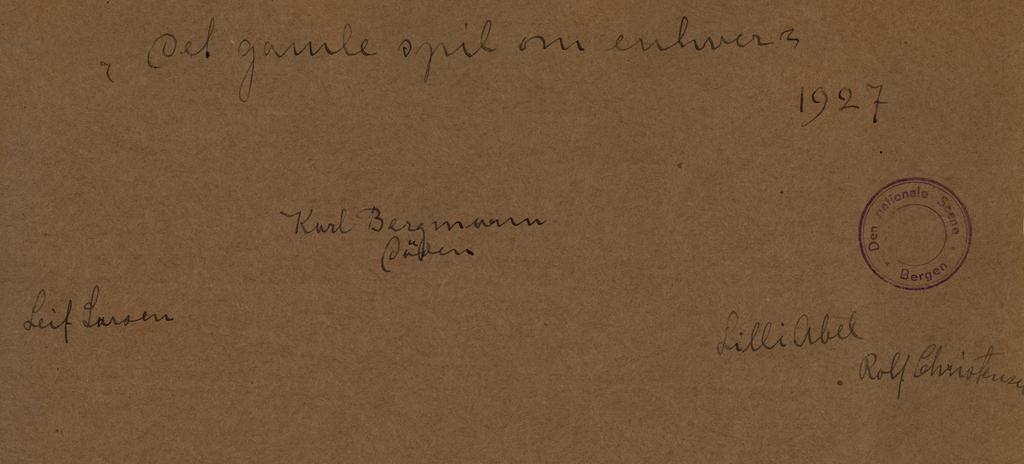 „Det gamle spil om enhver"
1927
Den nationale Scene
Bergen
Karl Bergmann
Döden
Leif Larsen
Lilli Abel
Rolf Christensen